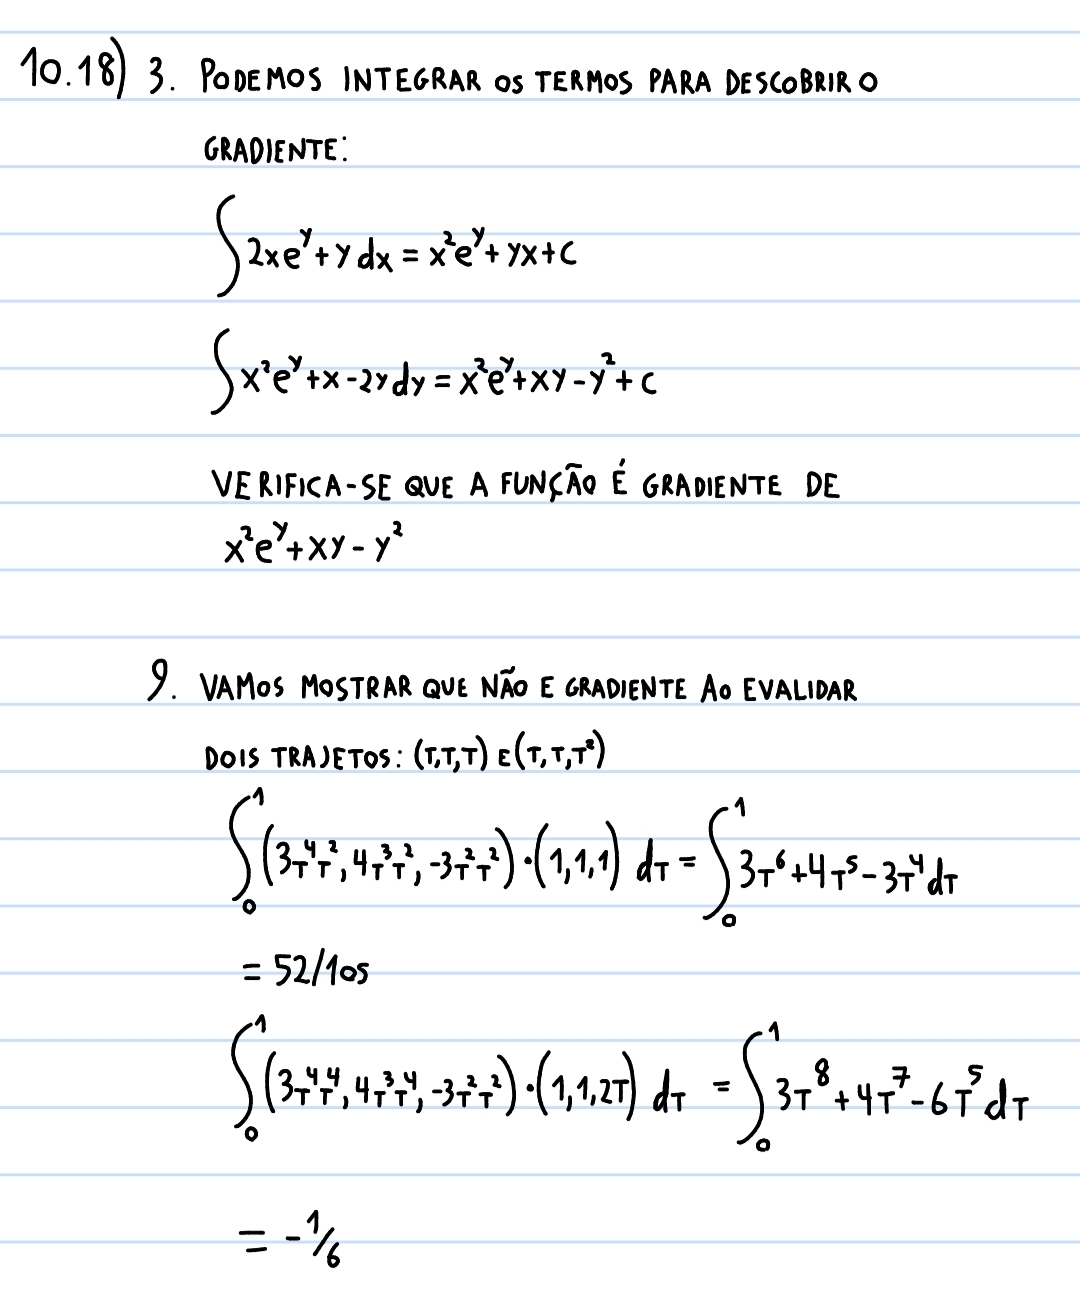 10.18) 3. PODEMOS INTEGRAR OS TERMOS PARA DESCOBRIR O
GRADIENTE:
∫2xeʸ+y dx = x²eʸ+yx+C
∫x²eʸ+x-2y dy = x²eʸ+xy-y²+C
VERIFICA-SE QUE A FUNÇÃO É GRADIENTE DE
x²eʸ+xy-y²
9. VAMOS MOSTRAR QUE NÃO E GRADIENTE AO EVALIDAR
DOIS TRAJETOS: (T,T,T) E (T,T,T²)
∫₀¹(3T⁴T²,4T³T²,-3T²T²)·(1,1,1) dT = ∫₀¹3T⁶+4T⁵-3T⁴dT
= 52/105
∫₀¹(3T⁴T⁴,4T³T⁴,-3T²T²)·(1,1,2T) dT = ∫₀¹3T⁸+4T⁷-6T⁵dT
= -1/6